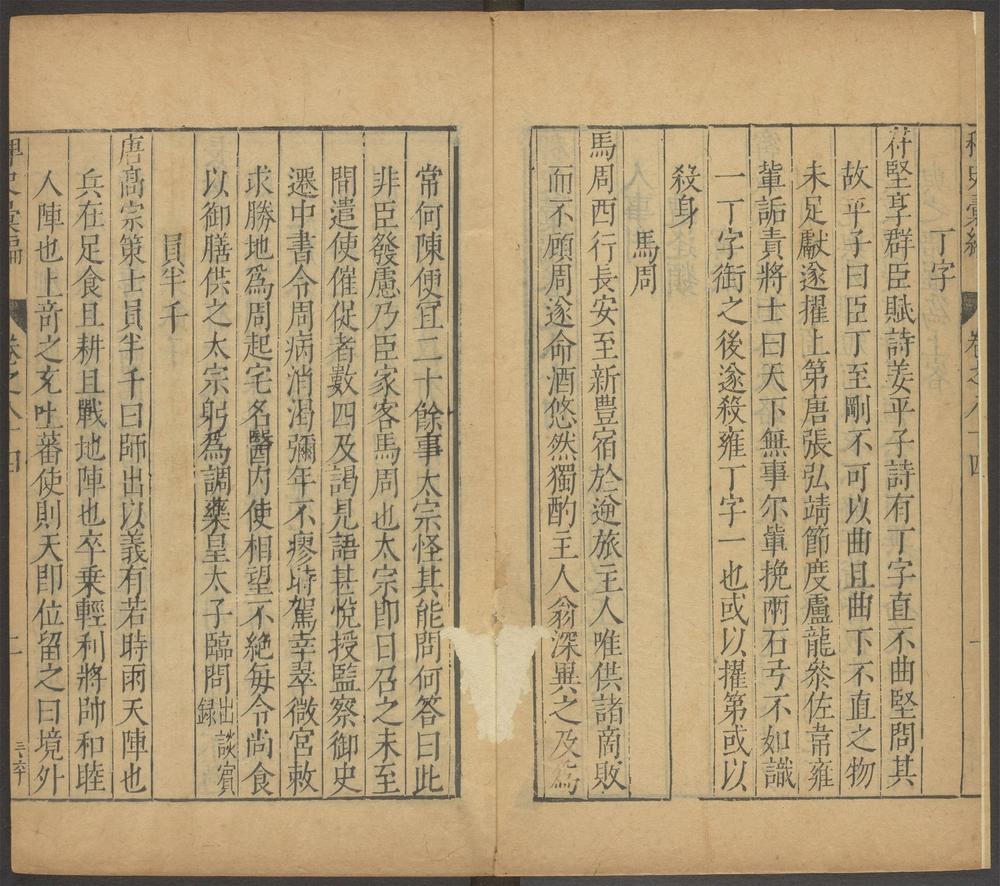 稗史彙編 卷之八十四 一
丁字
苻堅享群臣賦詩姜平子詩有丁字直不曲堅問其
故平子曰臣丁至剛不可以曲且曲下不直之物
未足獻遂擢上第唐張弘靖節度盧龍參佐韋雍
輩詬責將士曰天下無事尔輩挽兩石弓不如識
一丁字銜之後遂殺雍丁字一也或以擢第或以
殺身
馬周
馬周西行長安至新豐宿於逆旅主人唯供諸商販
而不顧周遂命酒悠然獨酌主人翁深異之及為
常何陳便宜二十餘事太宗怪其能問何答曰此
非臣發慮乃臣家客馬周也太宗即日召之未至
間遣使催促者數四及謁見語甚悅授監察御史
遷中書令周病消渴彌年不瘳時駕幸翠微宮敕
求勝地爲周起宅名醫内使相望不絕每令尚食
以御膳供之太宗躬爲調藥皇太子臨問出談賓
錄
員半千
唐高宗策士員半千曰師出以義有若時雨天陣也
兵在足食且耕且戰地陣也卒乗輕利將帥和睦
人陣也上竒之充吐蕃使則天即位留之曰境外
稗史彙編 卷之八十四 二